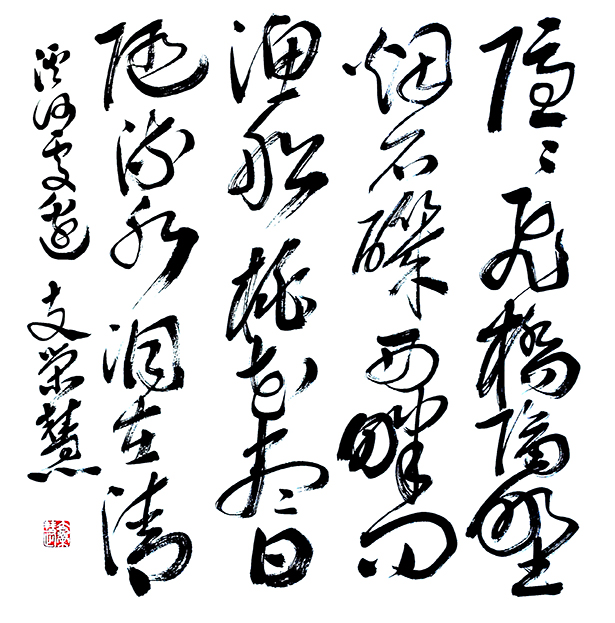 隱〻飛橋隔野
烟石磯西畔问
漁船桃花盡日
随流水洞在清
溪何處邊 支荣慧